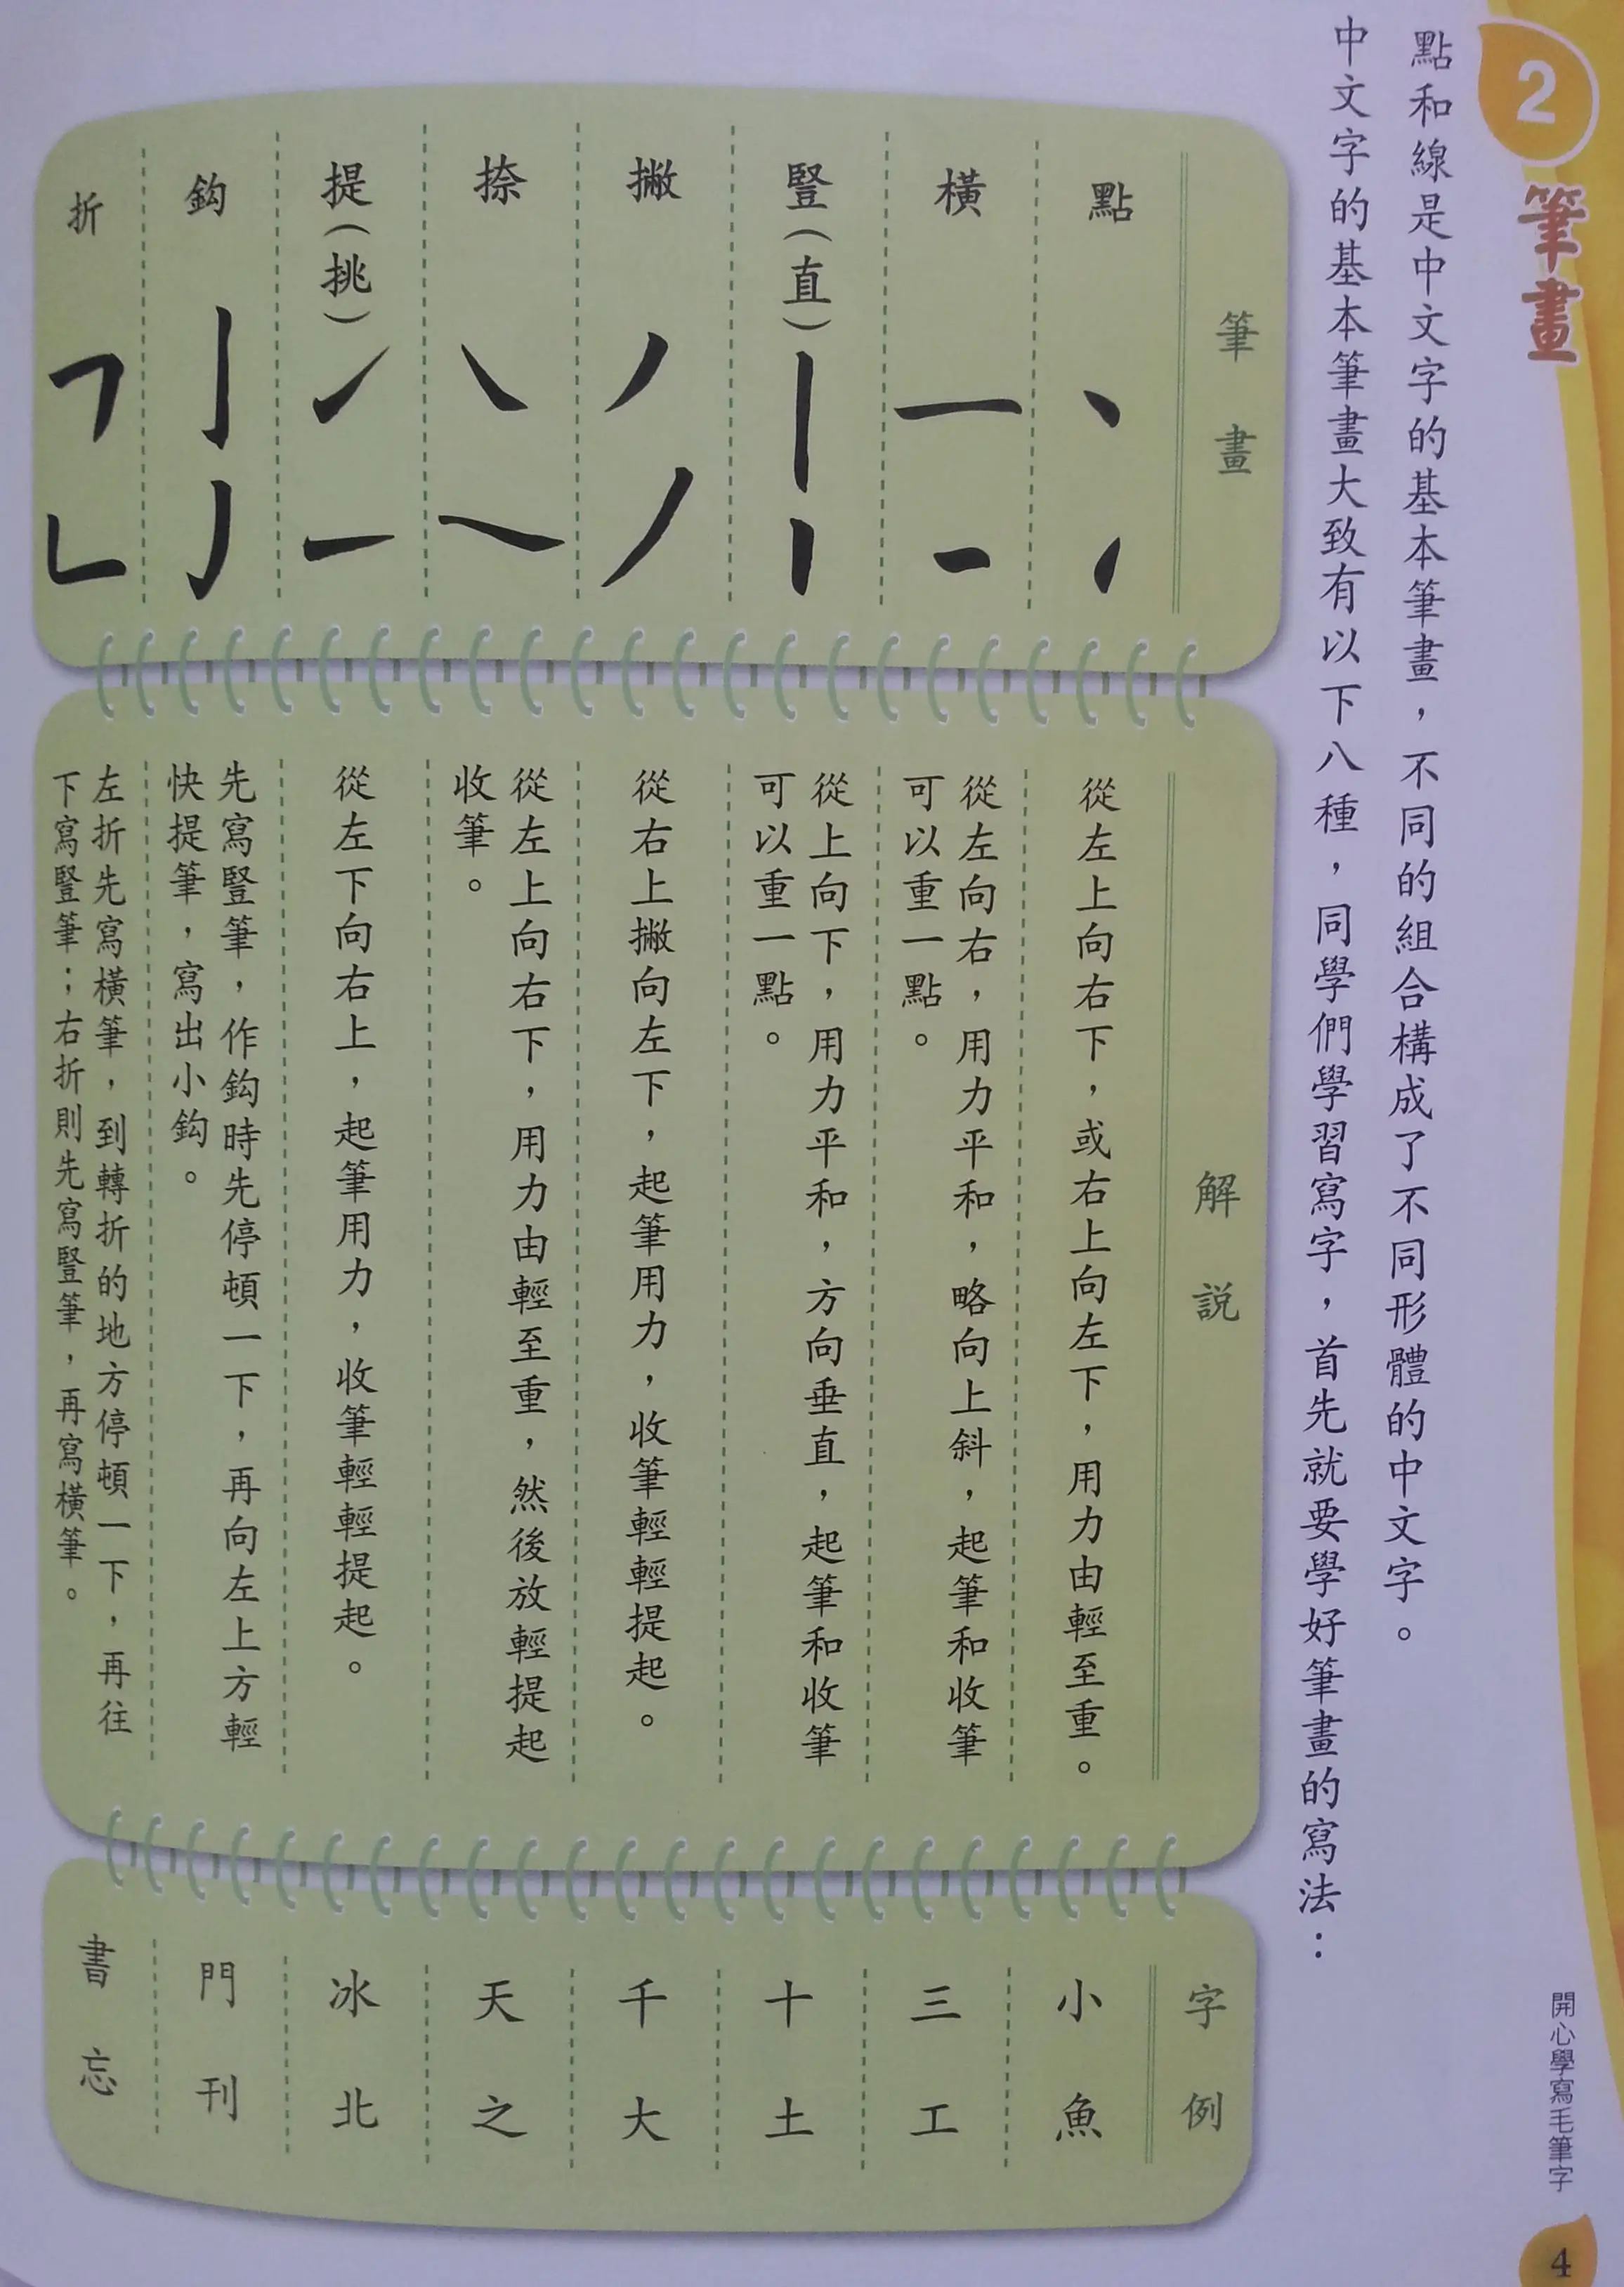 2 筆畫
點和線是中文字的基本筆畫，不同的組合構成了不同形體的中文字。
中文字的基本筆畫大致有以下八種，同學們學習寫字，首先就要學好筆畫的寫法：
筆畫
解説
字例
點
從左上向右下，或右上向左下，用力由輕至重。
小魚
橫
從左向右，用力平和，略向上斜，起筆和收筆
可以重一點。
三工
豎（直）
從上向下，用力平和，方向垂直，起筆和收筆
可以重一點。
十土
撇
從右上撇向左下，起筆用力，收筆輕輕提起。
千大
捺
從左上向右下，用力由輕至重，然後放輕提起
收筆。
天之
提（挑）
從左下向右上，起筆用力，收筆輕輕提起。
冰北
鈎
先寫豎筆，作鈎時先停頓一下，再向左上方輕
快提筆，寫出小鈎。
門刊
折
左折先寫橫筆，到轉折的地方停頓一下，再往
下寫豎筆；右折則先寫豎筆，再寫橫筆。
書忘
開心學寫毛筆字
4